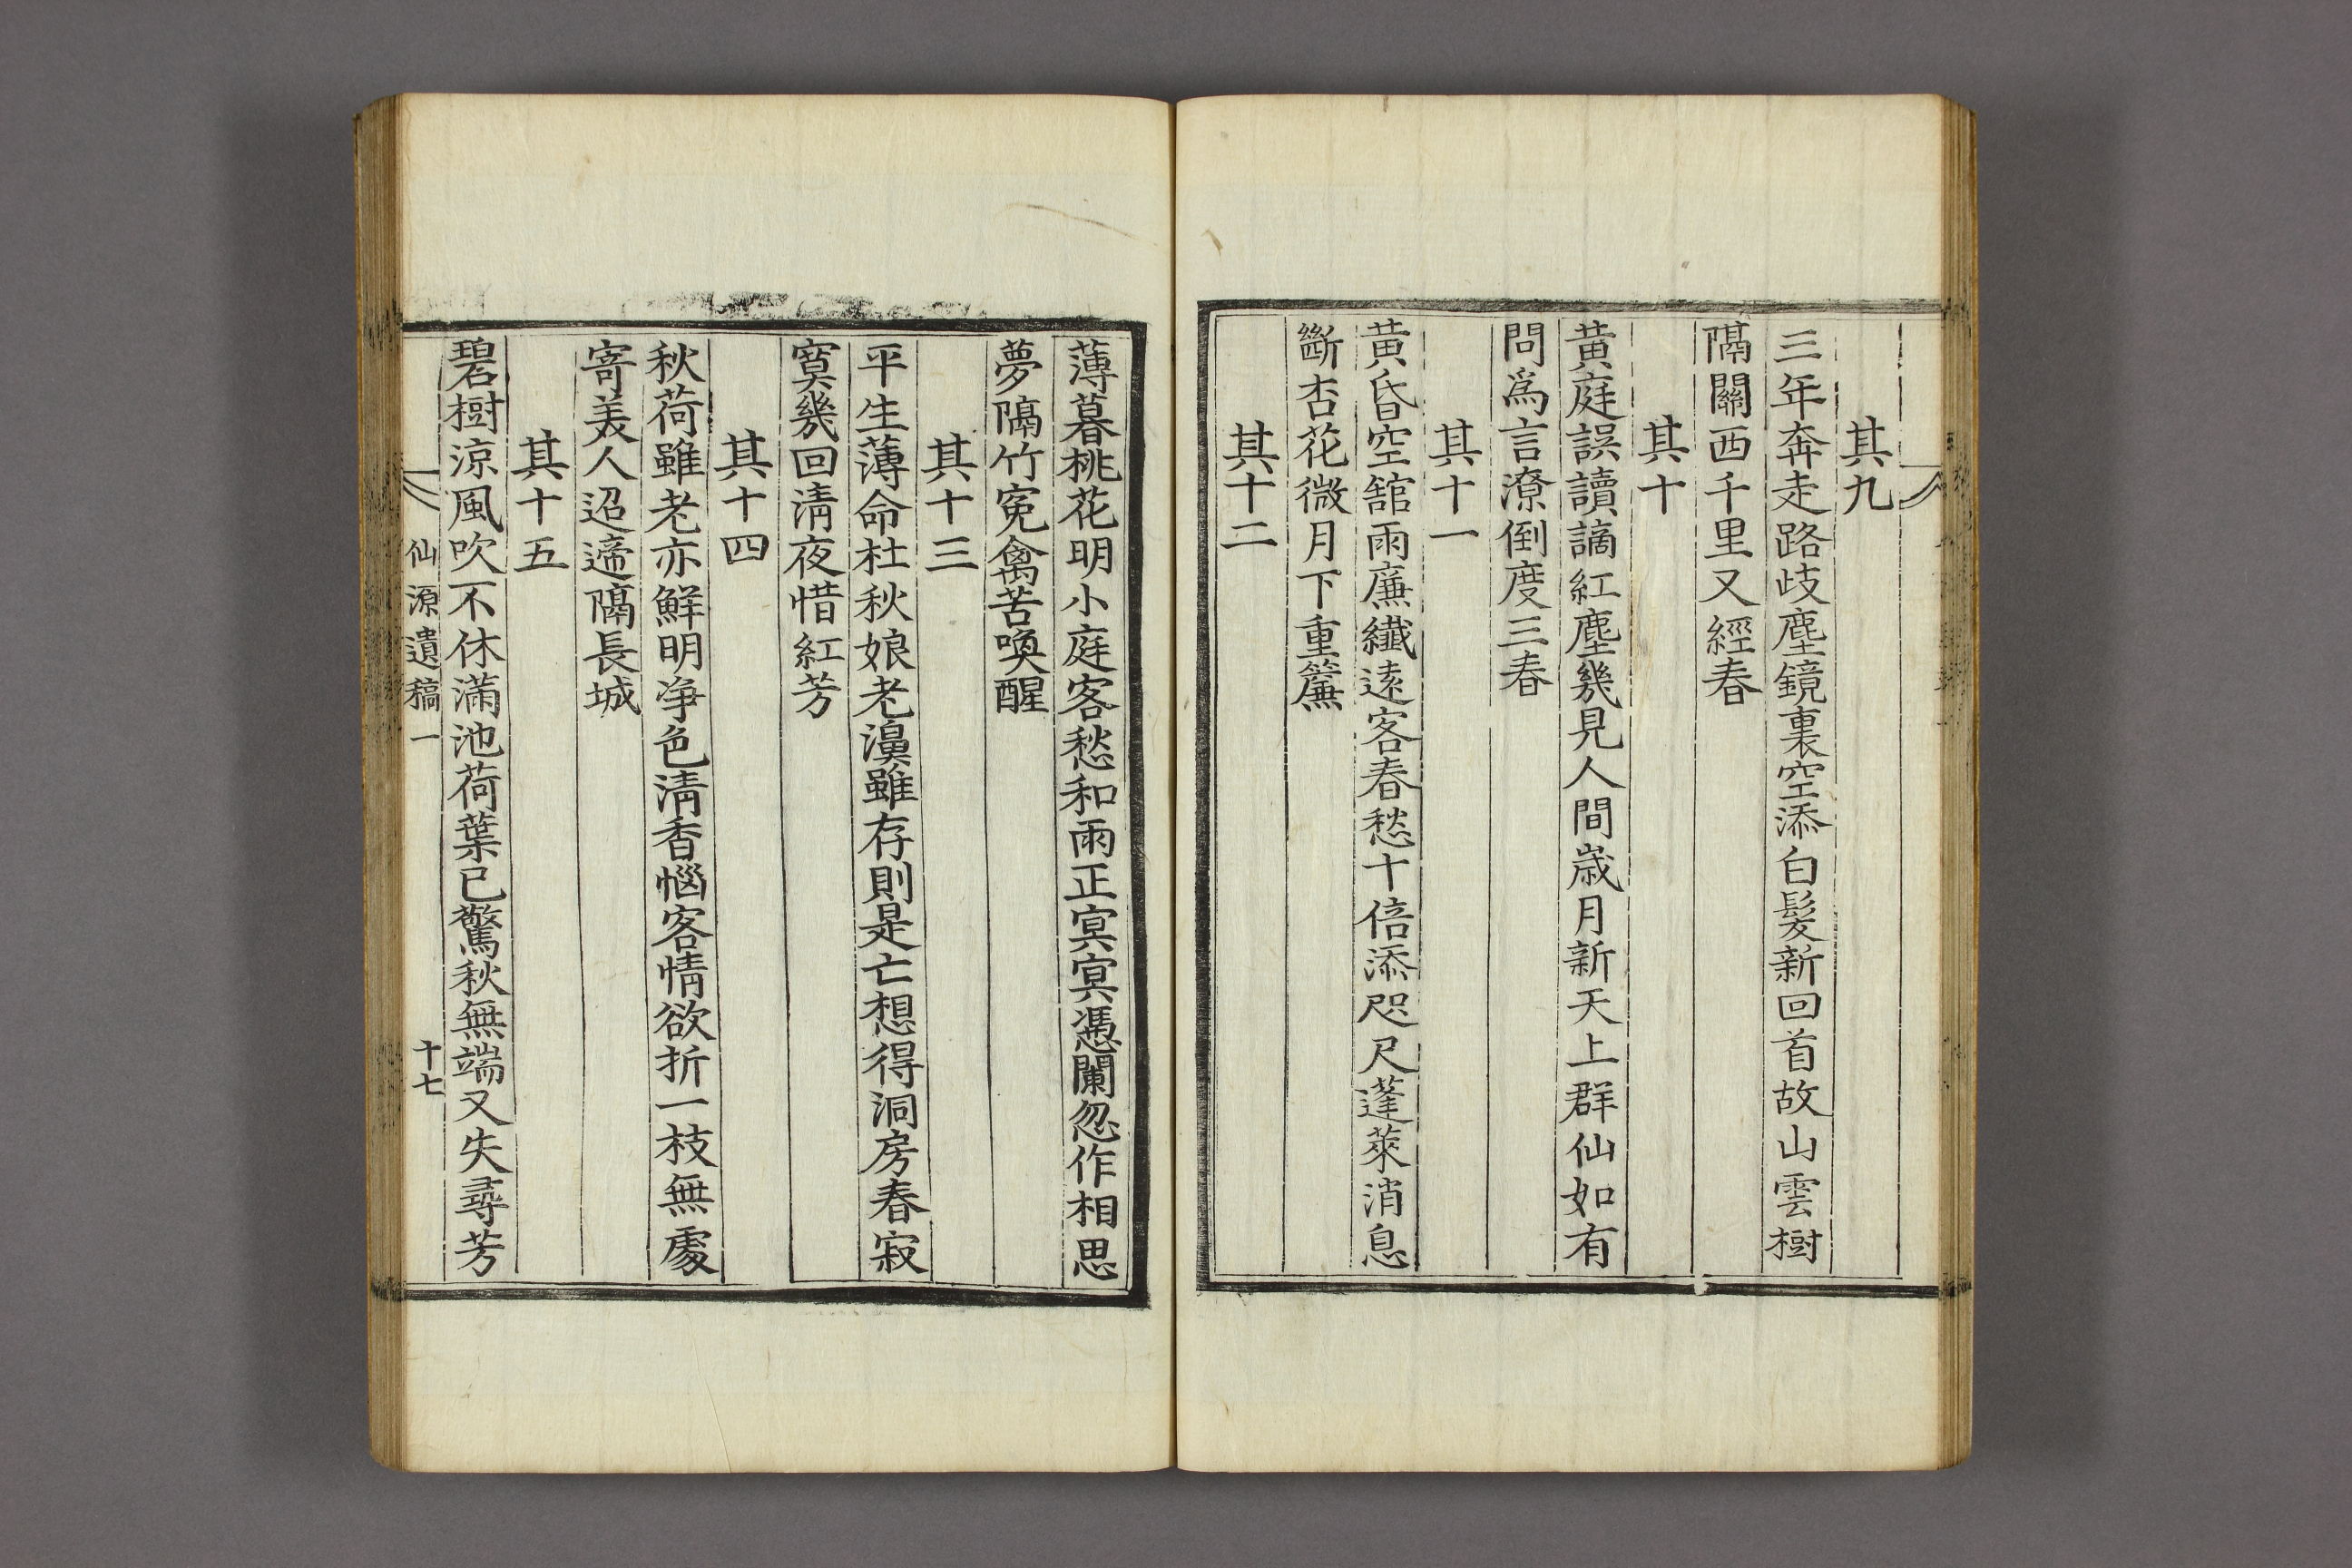 其九
三年奔走路歧塵鏡裏空添白髮新回首故山雲樹
隔關西千里又經春
其十
黃庭誤讀謫紅塵幾見人間歲月新天上群仙如有
問爲言潦倒度三春
其十一
黃昏空舘雨廉纖遠客春愁十倍添咫尺蓬萊消息
斷杏花微月下重簾
其十二
薄暮桃花明小庭客愁和雨正冥冥憑闌忽作相思
夢隔竹寃禽苦喚醒
其十三
平生薄命杜秋娘老濵雖存則是亡想得洞房春寂
寞幾回淸夜惜紅芳
其十四
秋荷雖老亦鮮明净色淸香惱客情欲折一枝無處
寄美人迢遆隔長城
其十五
碧樹涼風吹不休滿池荷葉已驚秋無端又失尋芳
仙源遺稿一
十七